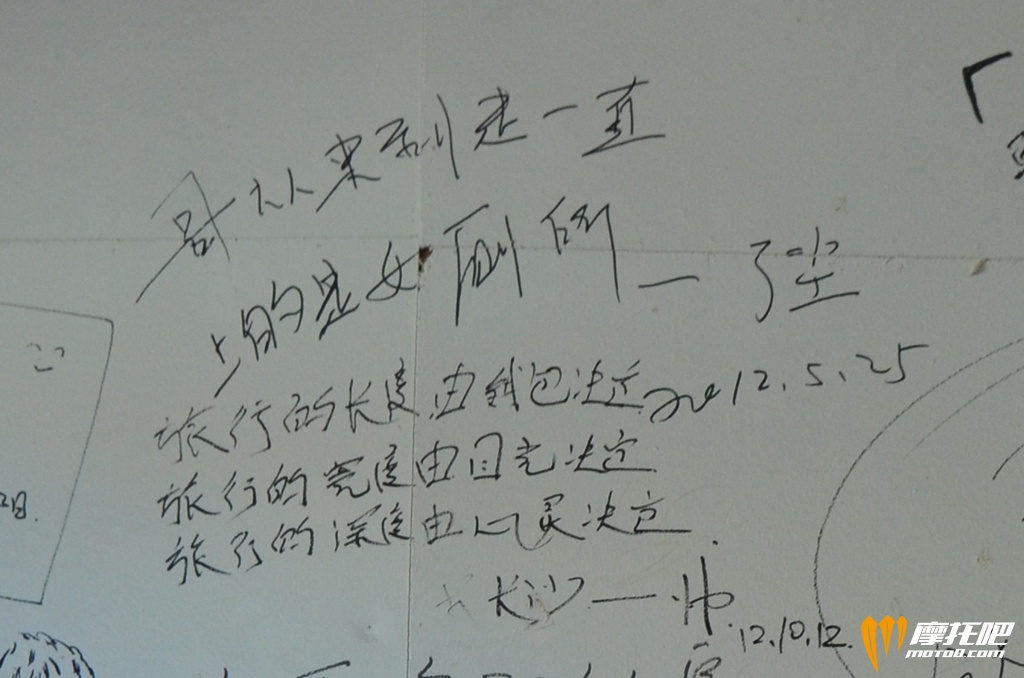 哥从来到走一直
上的是女厕所一了尘
2012.5.25
旅行的长度由钱包决定
旅行的宽度由目光决定
旅行的深度由心灵决定
长沙一帅
12.10.12.
摩托吧
moto8.com